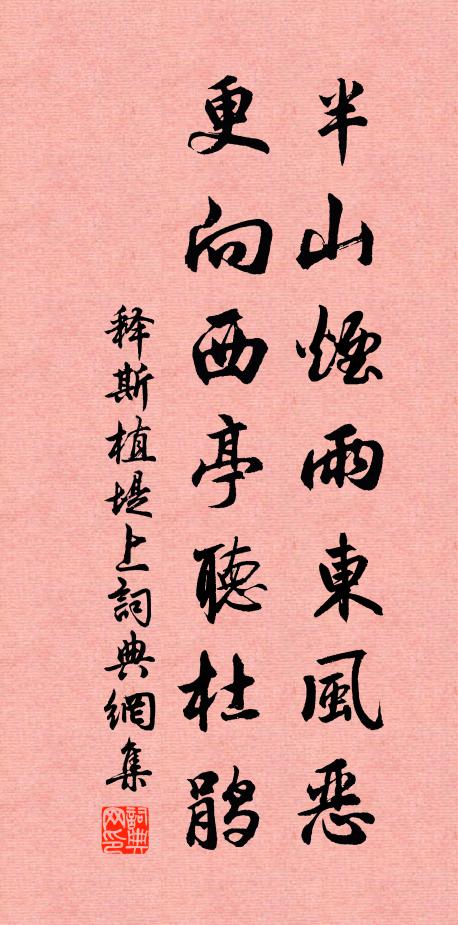 半山煙雨東風惡
更向西亭聽杜鵑
释斯植堤上詞典網集
詞典网印